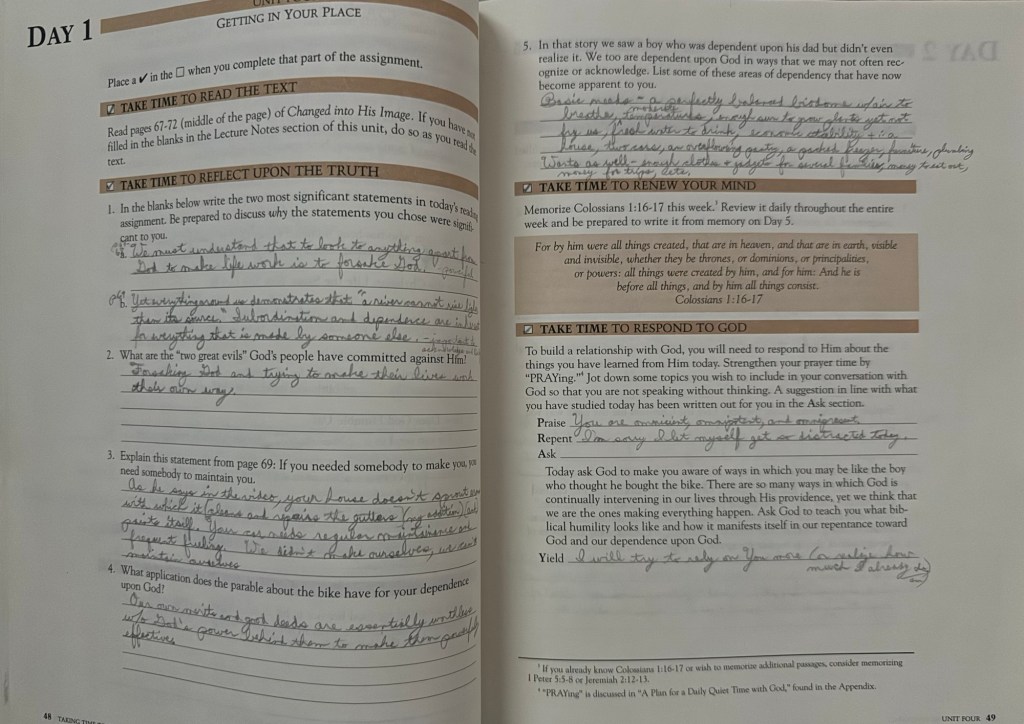 DAY 1
GETTING IN YOUR PLACE
Place a ✔ in the ☐ when you complete that part of the assignment.
TAKE TIME TO READ THE TEXT
Read pages 67-72 (middle of the page) of Changed into His Image. If you have not
filled in the blanks in the Lecture Notes section of this unit, do so as you read the
text.
TAKE TIME TO REFLECT UPON THE TRUTH
1. In the blanks below write the two most significant statements in today's reading
assignment. Be prepared to discuss why the statements you chose were signifi-
cant to you.
a. We must understand that to look to anything apart from
God to make life work is to forsake God.
b. Yet everything around us demonstrates that "a river cannot rise higher
than its source." Subordination and dependence are
for everything that is made by someone else.
2. What are the "two great evils" God's people have committed against Him?
Forsaking God and trying to make their lives work
their own way.
3. Explain this statement from page 69: If you needed somebody to make you, you
need somebody to maintain you.
As he says in the video, your house doesn't sprout
with which it cleans and repairs the gutters (my addition) and
paints itself. Your car needs regular maintenance and
frequent fueling. We didn't make ourselves, we can't
maintain ourselves
4. What application does the parable about the bike have for your dependence
upon God?
Our own merits and good deeds are essentially worthless
w/o God's power behind them to make them
effective.
48 TAKING TIME
5. In that story we saw a boy who was dependent upon his dad but didn't even
realize it. We too are dependent upon God in ways that we may not often rec-
ognize or acknowledge. List some of these areas of dependency that have now
become apparent to you.
Basic needs - a perfectly balanced w/air to
breathe, moderate temperatures, enough sun to grow plants yet not
fry us, fresh water to drink, economic stability + a
house, two cars, an overflowing pantry, a packed freezer, furniture, plumbing
Wants as well - enough clothes + for several families, money to eat out,
money for trips, etc.
TAKE TIME TO RENEW YOUR MIND
Memorize Colossians 1:16-17 this week.³ Review it daily throughout the entire
week and be prepared to write it from memory on Day 5.
For by him were all things created, that are in heaven, and that are in earth, visible
and invisible, whether they be thrones, or dominions, or principalities,
or powers: all things were created by him, and for him: And he is
before all things, and by him all things consist.
Colossians 1:16-17
TAKE TIME TO RESPOND TO GOD
To build a relationship with God, you will need to respond to Him about the
things you have learned from Him today. Strengthen your prayer time by
"PRAYing."⁴ Jot down some topics you wish to include in your conversation with
God so that you are not speaking without thinking. A suggestion in line with what
you have studied today has been written out for you in the Ask section.
Praise You are omniscient, omnipotent, and omnipresent.
Repent I'm sorry I let myself get so distracted today.
Ask
Today ask God to make you aware of ways in which you may be like the boy
who thought he bought the bike. There are so many ways in which God is
continually intervening in our lives through His providence, yet we think that
we are the ones making everything happen. Ask God to teach you what bib-
lical humility looks like and how it manifests itself in our repentance toward
God and our dependence upon God.
Yield I will try to rely on You more (or realize how
much I already do)
³ If you already know Colossians 1:16-17 or wish to memorize additional passages, consider memorizing
1 Peter 5:5-8 or Jeremiah 2:12-13.
⁴ "PRAYing" is discussed in "A Plan for a Daily Quiet Time with God," found in the Appendix.
UNIT FOUR 49